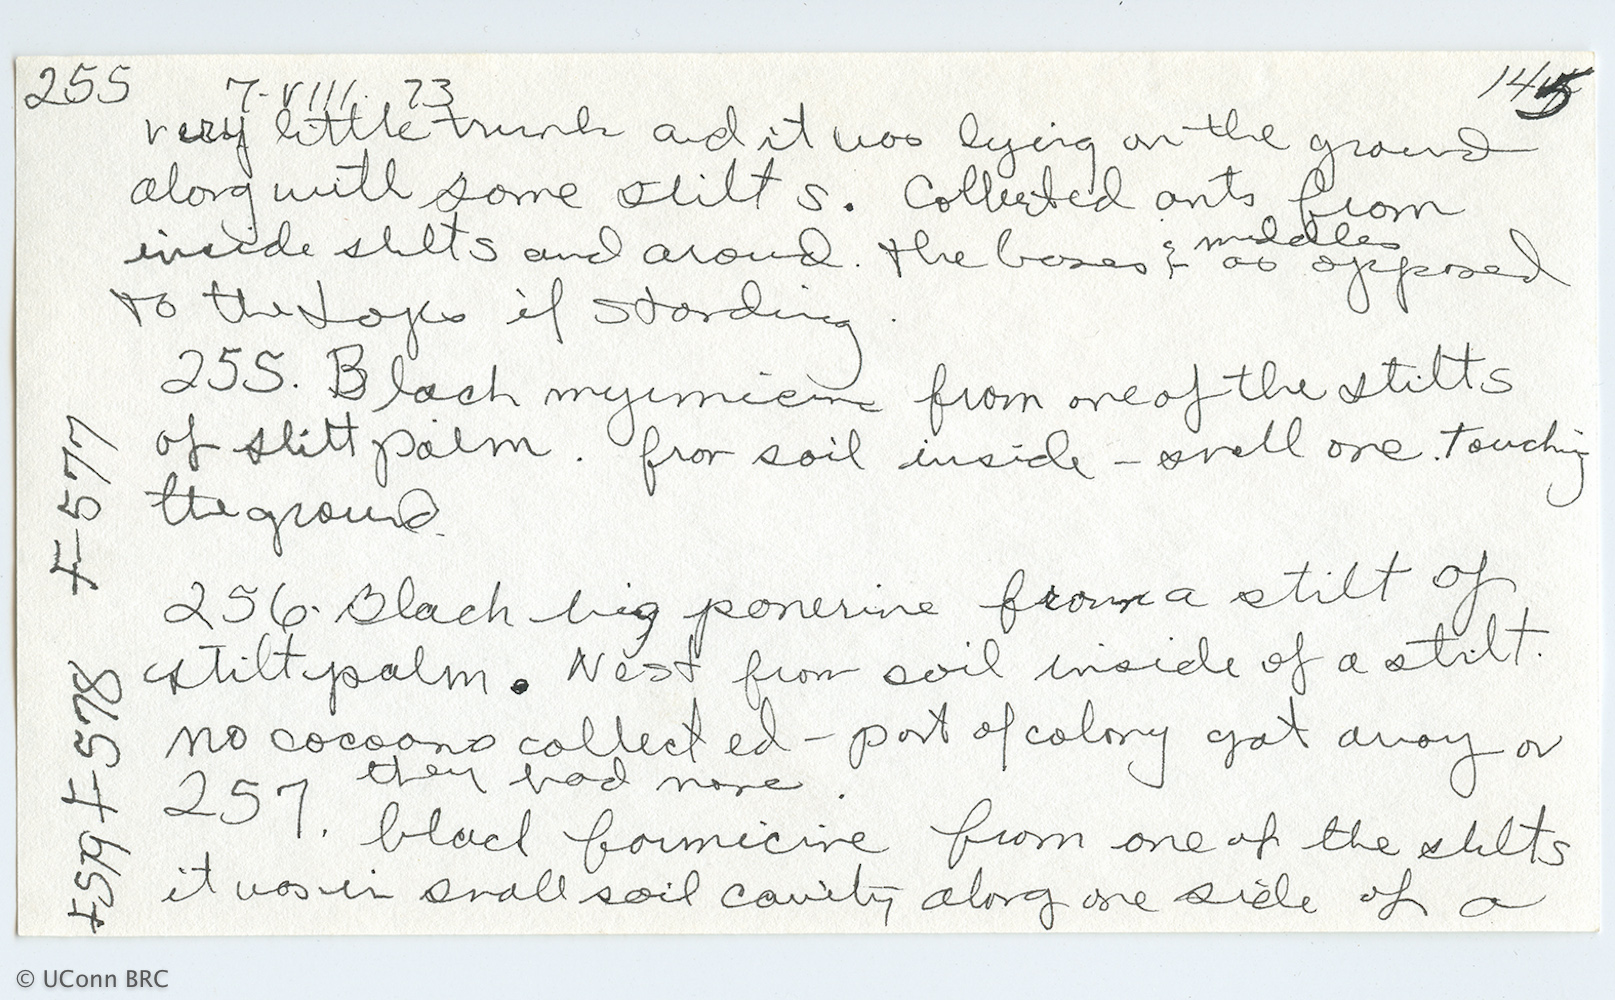 255 7-VIII. 73 145
very little trunk and it was lying on the ground
along with some stilts. Collected ants from
inside stilts and around. the bases & middles as opposed
to the tops if standing.
255. Black myrmicine from one of the stilts
of stilt palm. from soil inside - small one. touching
the ground.
256. Black big ponerine from a stilt of
stilt palm. Nest from soil inside of a stilt.
no cocoons collected - part of colony got away or
they had none.
257. black formicine from one of the stilts
it was in small soil cavity along one side of a
F-577
F-578
F-579
© UConn BRC